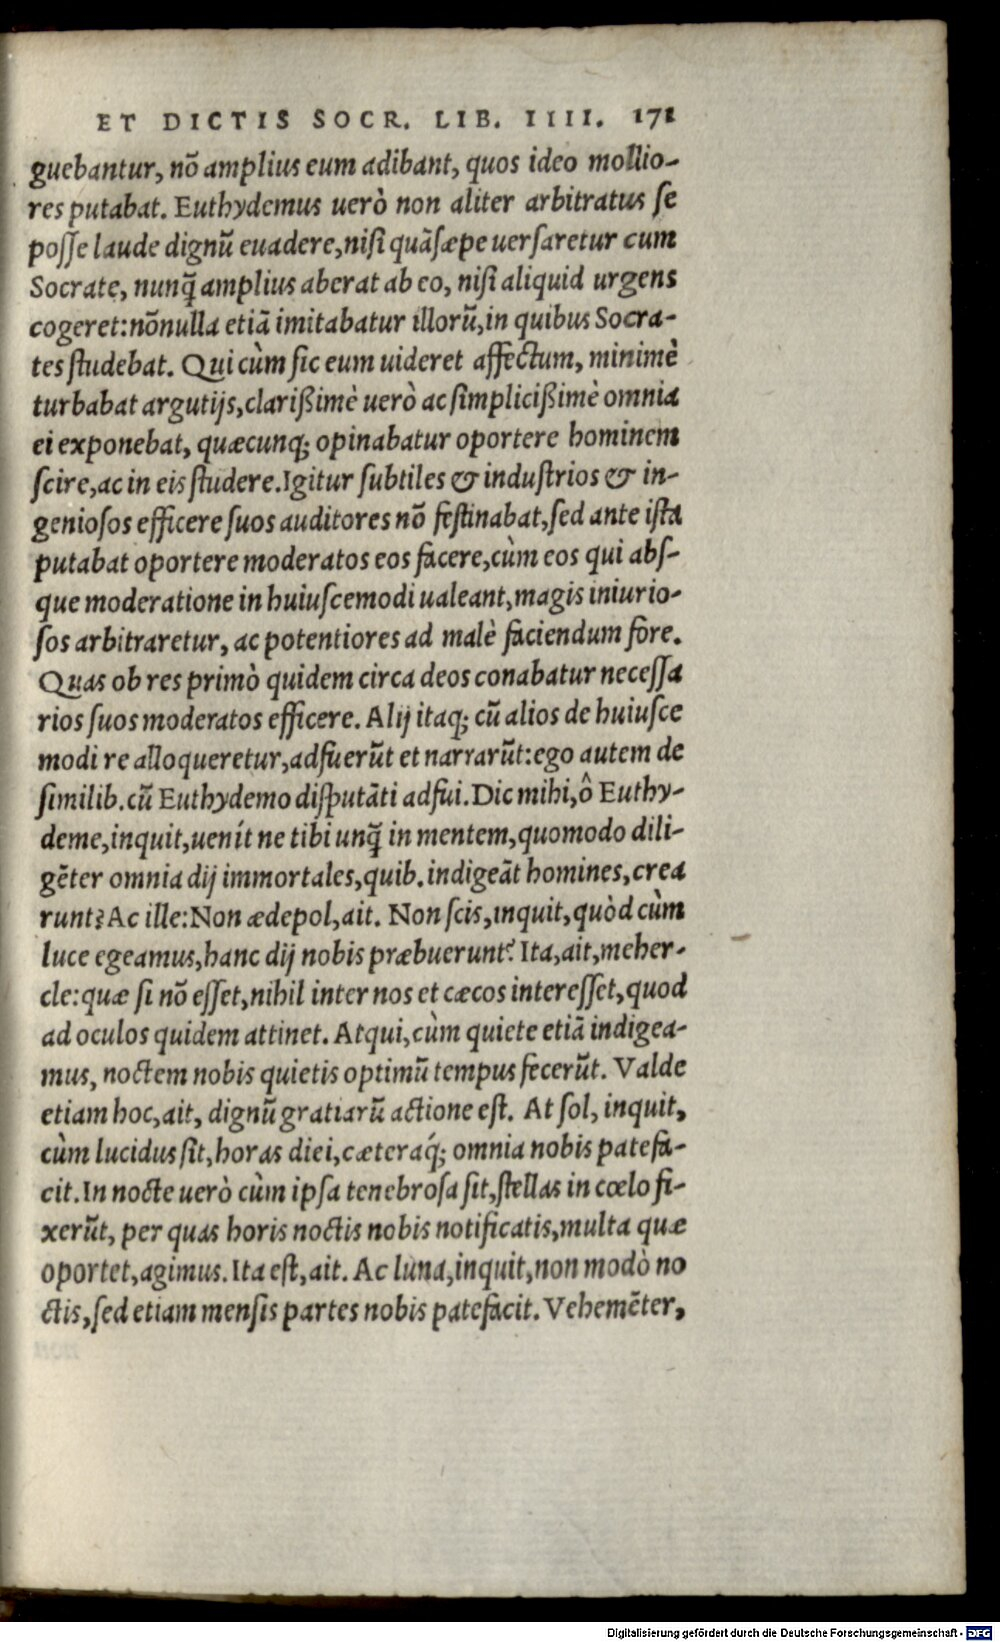 ET DICTIS SOCR. LIB. IIII. 171
guebantur, nō amplius eum adibant, quos ideo mollio-
res putabat. Euthydemus uerò non aliter arbitratus se
posse laude dignũ euadere, nisi quàsæpe uersaretur cum
Socrate, nunq̃ amplius aberat ab eo, nisi aliquid urgens
cogeret: nōnulla etiā imitabatur illorũ, in quibus Socra-
tes studebat. Qui cùm sic eum uideret affectum, minimè
turbabat argutijs, clarißimè uerò ac simplicißimè omnia
ei exponebat, quæcunq; opinabatur oportere hominem
scire, ac in eis studere. Igitur subtiles & industrios & in-
geniosos efficere suos auditores nō festinabat, sed ante ista
putabat oportere moderatos eos facere, cùm eos qui abs-
que moderatione in huiuscemodi ualeant, magis iniurio-
sos arbitraretur, ac potentiores ad malè faciendum fore.
Quas ob res primò quidem circa deos conabatur necessa
rios suos moderatos efficere. Alij itaq; cũ alios de huiusce
modi re alloqueretur, adfuerũt et narrarũt: ego autem de
similib. cũ Euthydemo disputāti adfui. Dic mihi, ô Euthy-
deme, inquit, uenít ne tibi unq̃ in mentem, quomodo dili-
gēter omnia dij immortales, quib. indigeāt homines, crea
runt? Ac ille: Non ædepol, ait. Non scis, inquit, quòd cùm
luce egeamus, hanc dij nobis præbuerunt? Ita, ait, meher-
cle: quæ si nō esset, nihil inter nos et cæcos interesset, quod
ad oculos quidem attinet. Atqui, cùm quiete etiā indigea-
mus, noctem nobis quietis optimũ tempus fecerũt. Valde
etiam hoc, ait, dignũ gratiarũ actione est. At sol, inquit,
cùm lucidus sit, horas diei, cæteraq́; omnia nobis patefa-
cit. In nocte uerò cùm ipsa tenebrosa sit, stellas in cœlo fi-
xerũt, per quas horis noctis nobis notificatis, multa quæ
oportet, agimus. Ita est, ait. Ac luna, inquit, non modò no
ctis, sed etiam mensis partes nobis patefacit. Vehemēter,
Digitalisierung gefördert durch die Deutsche Forschungsgemeinschaft - DFG